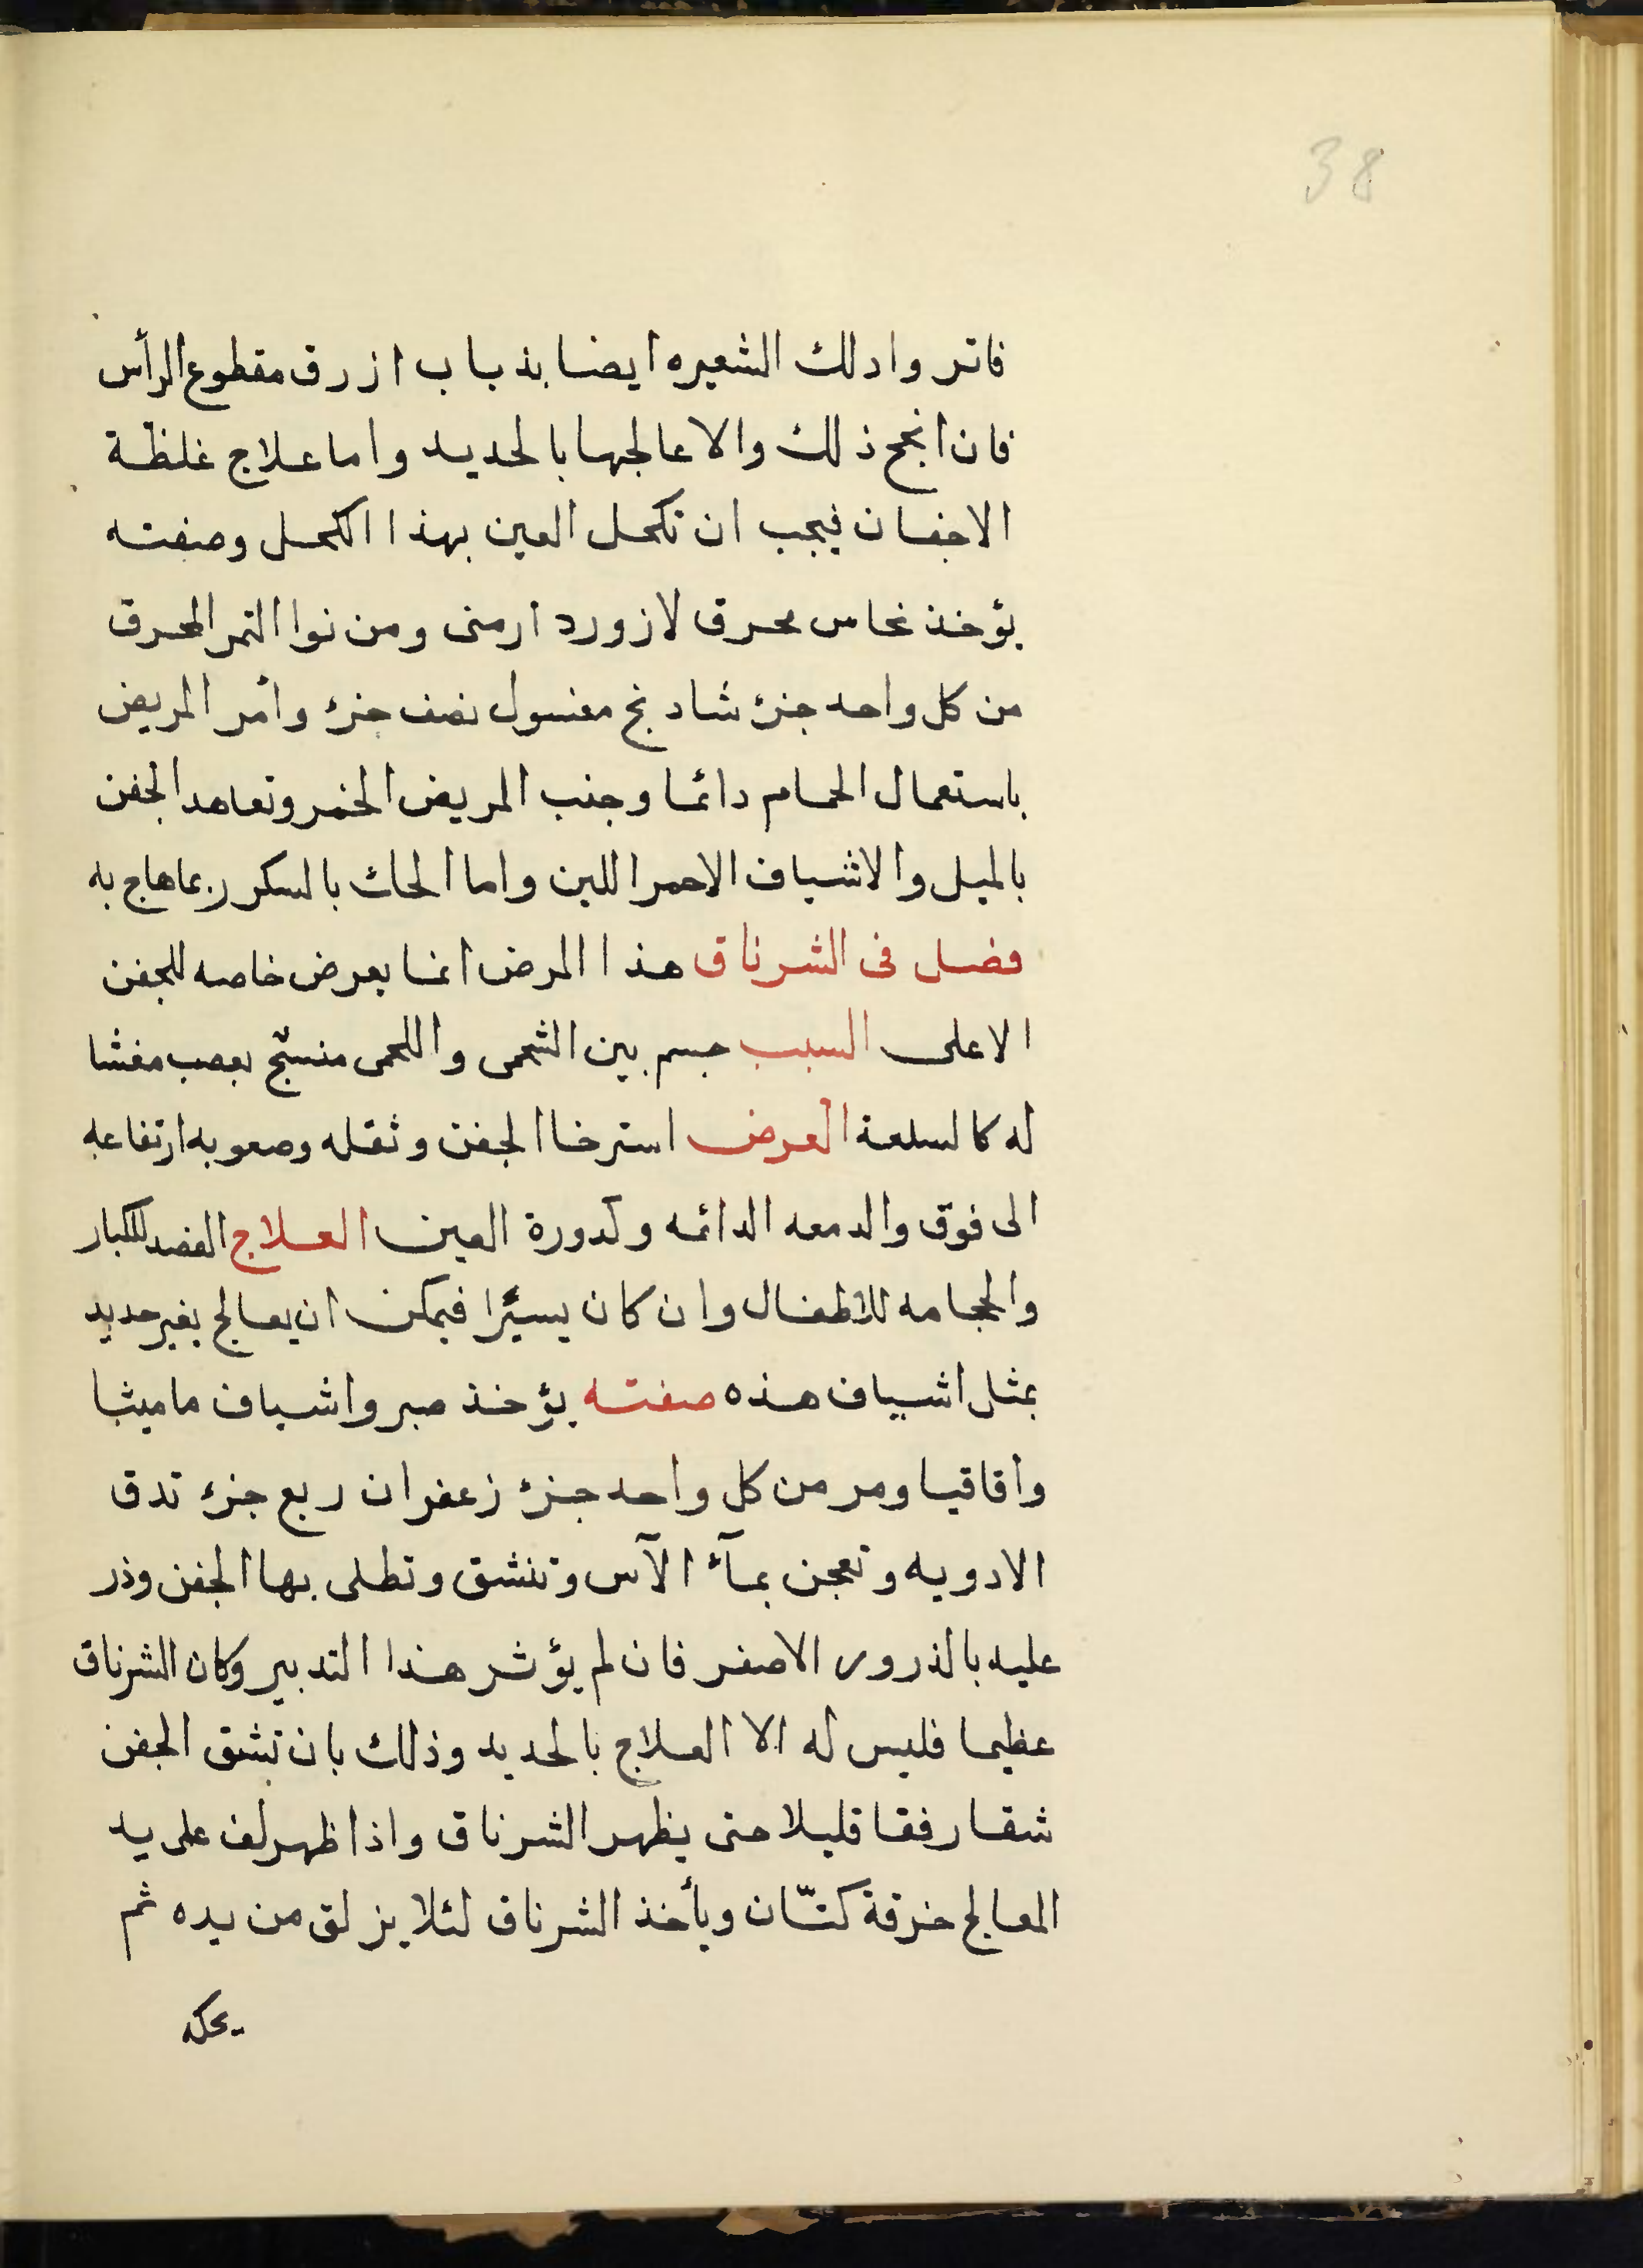 38
فاتر وادلك الشعيره ايضا بذباب ازرق مقطوع الرأس
فان انجح ذلك والا عالجها بالحديد واما علاج غلظة
الاجفان فيجب ان تكحل العين بهذا الكحل وصفته
يؤخذ نحاس محرق لازورد ارمنى ومن نوا التمر المحرق
من كل واحد جزء شادنج مغسول نصف جزء وأمر المريض
باستعمال الحمام دائما وجنب المريض الخمر وتعاهد الجفن
بالميل والاشياف الاحمر اللين واما الحاك بالسكر ربما هاج به
فصل فى الشرناق هذا المرض انما يعرض خاصه للجفن
الاعلى السبب جسم بين الشحمى واللحمى منسج بعصب مغشا
له كالسلعة العرض استرخا الجفن وثقله وصعوبه ارتفاعه
الى فوق والدمعه الدائمه وكدورة العين العلاج الفصد للكبار
والحجامه للاطفال وان كان يسيرًا فيمكن ان يعالج بغير حديد
بمثل اشياف هذه صفته يؤخذ صبر واشياف ماميثا
وأقاقيا ومر من كل واحد جزء زعفران ربع جزء تدق
الادويه وتعجن بمآء الآس وتنشق وتطلى بها الجفن وذر
عليه بالذرور الاصفر فان لم يؤثر هذا التدبير وكان الشرناق
عظيما فليس له الا العلاج بالحديد وذلك بان تشق الجفن
شقا رفقا قليلا حتى يظهر الشرناق واذا ظهر لف على يد
المعالج خرقة كتّان ويأخذ الشرناق لئلا يزلق من يده ثم
يحكه